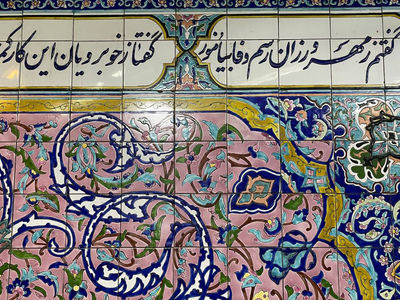 گفتم ز مهر ورزان رسم وفا بیاموز گفتا ز خوبرویان این کار